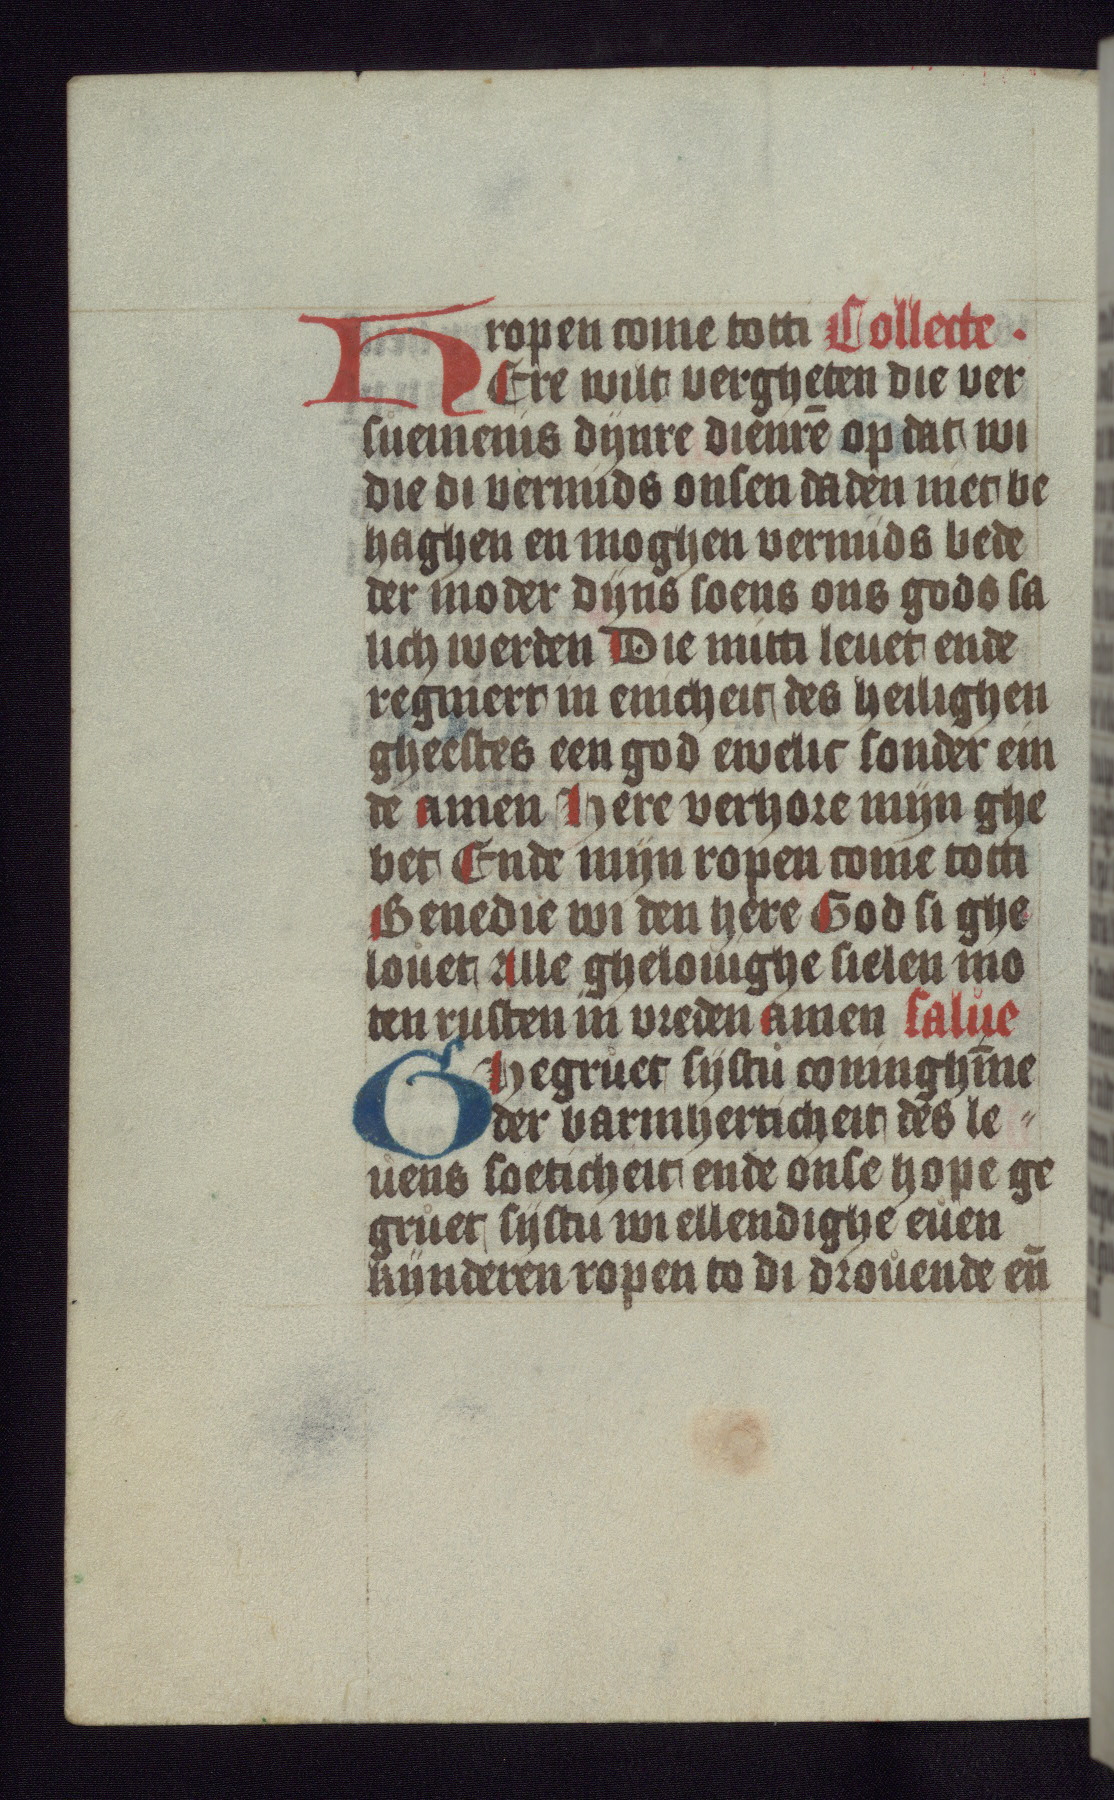 ropen come totti Collecte.
HEre wilt vergheten die ver
suemenis dijnre dienrē op dat wi
die di vermids onsen daden niet be
haghen en moghen vermids bede
der moder dijns soens ons gods sa
lich werden Die mitti leuet ende
regniert in enicheit des heilighen
gheestes een god ewelic sonder ein
de amen Here verhore mijn ghe
bet Ende mijn ropen come totti
Benedie wi den here God si ghe
louet Alle ghelouighe sielen mo
ten rusten in vreden amen salue
Ghegruet sijstu coninghīne
der barmherticheit des le
uens soeticheit ende onse hope ge
gruet sijstu wi ellendighe euen
kijnderen ropen to di drouende eñ